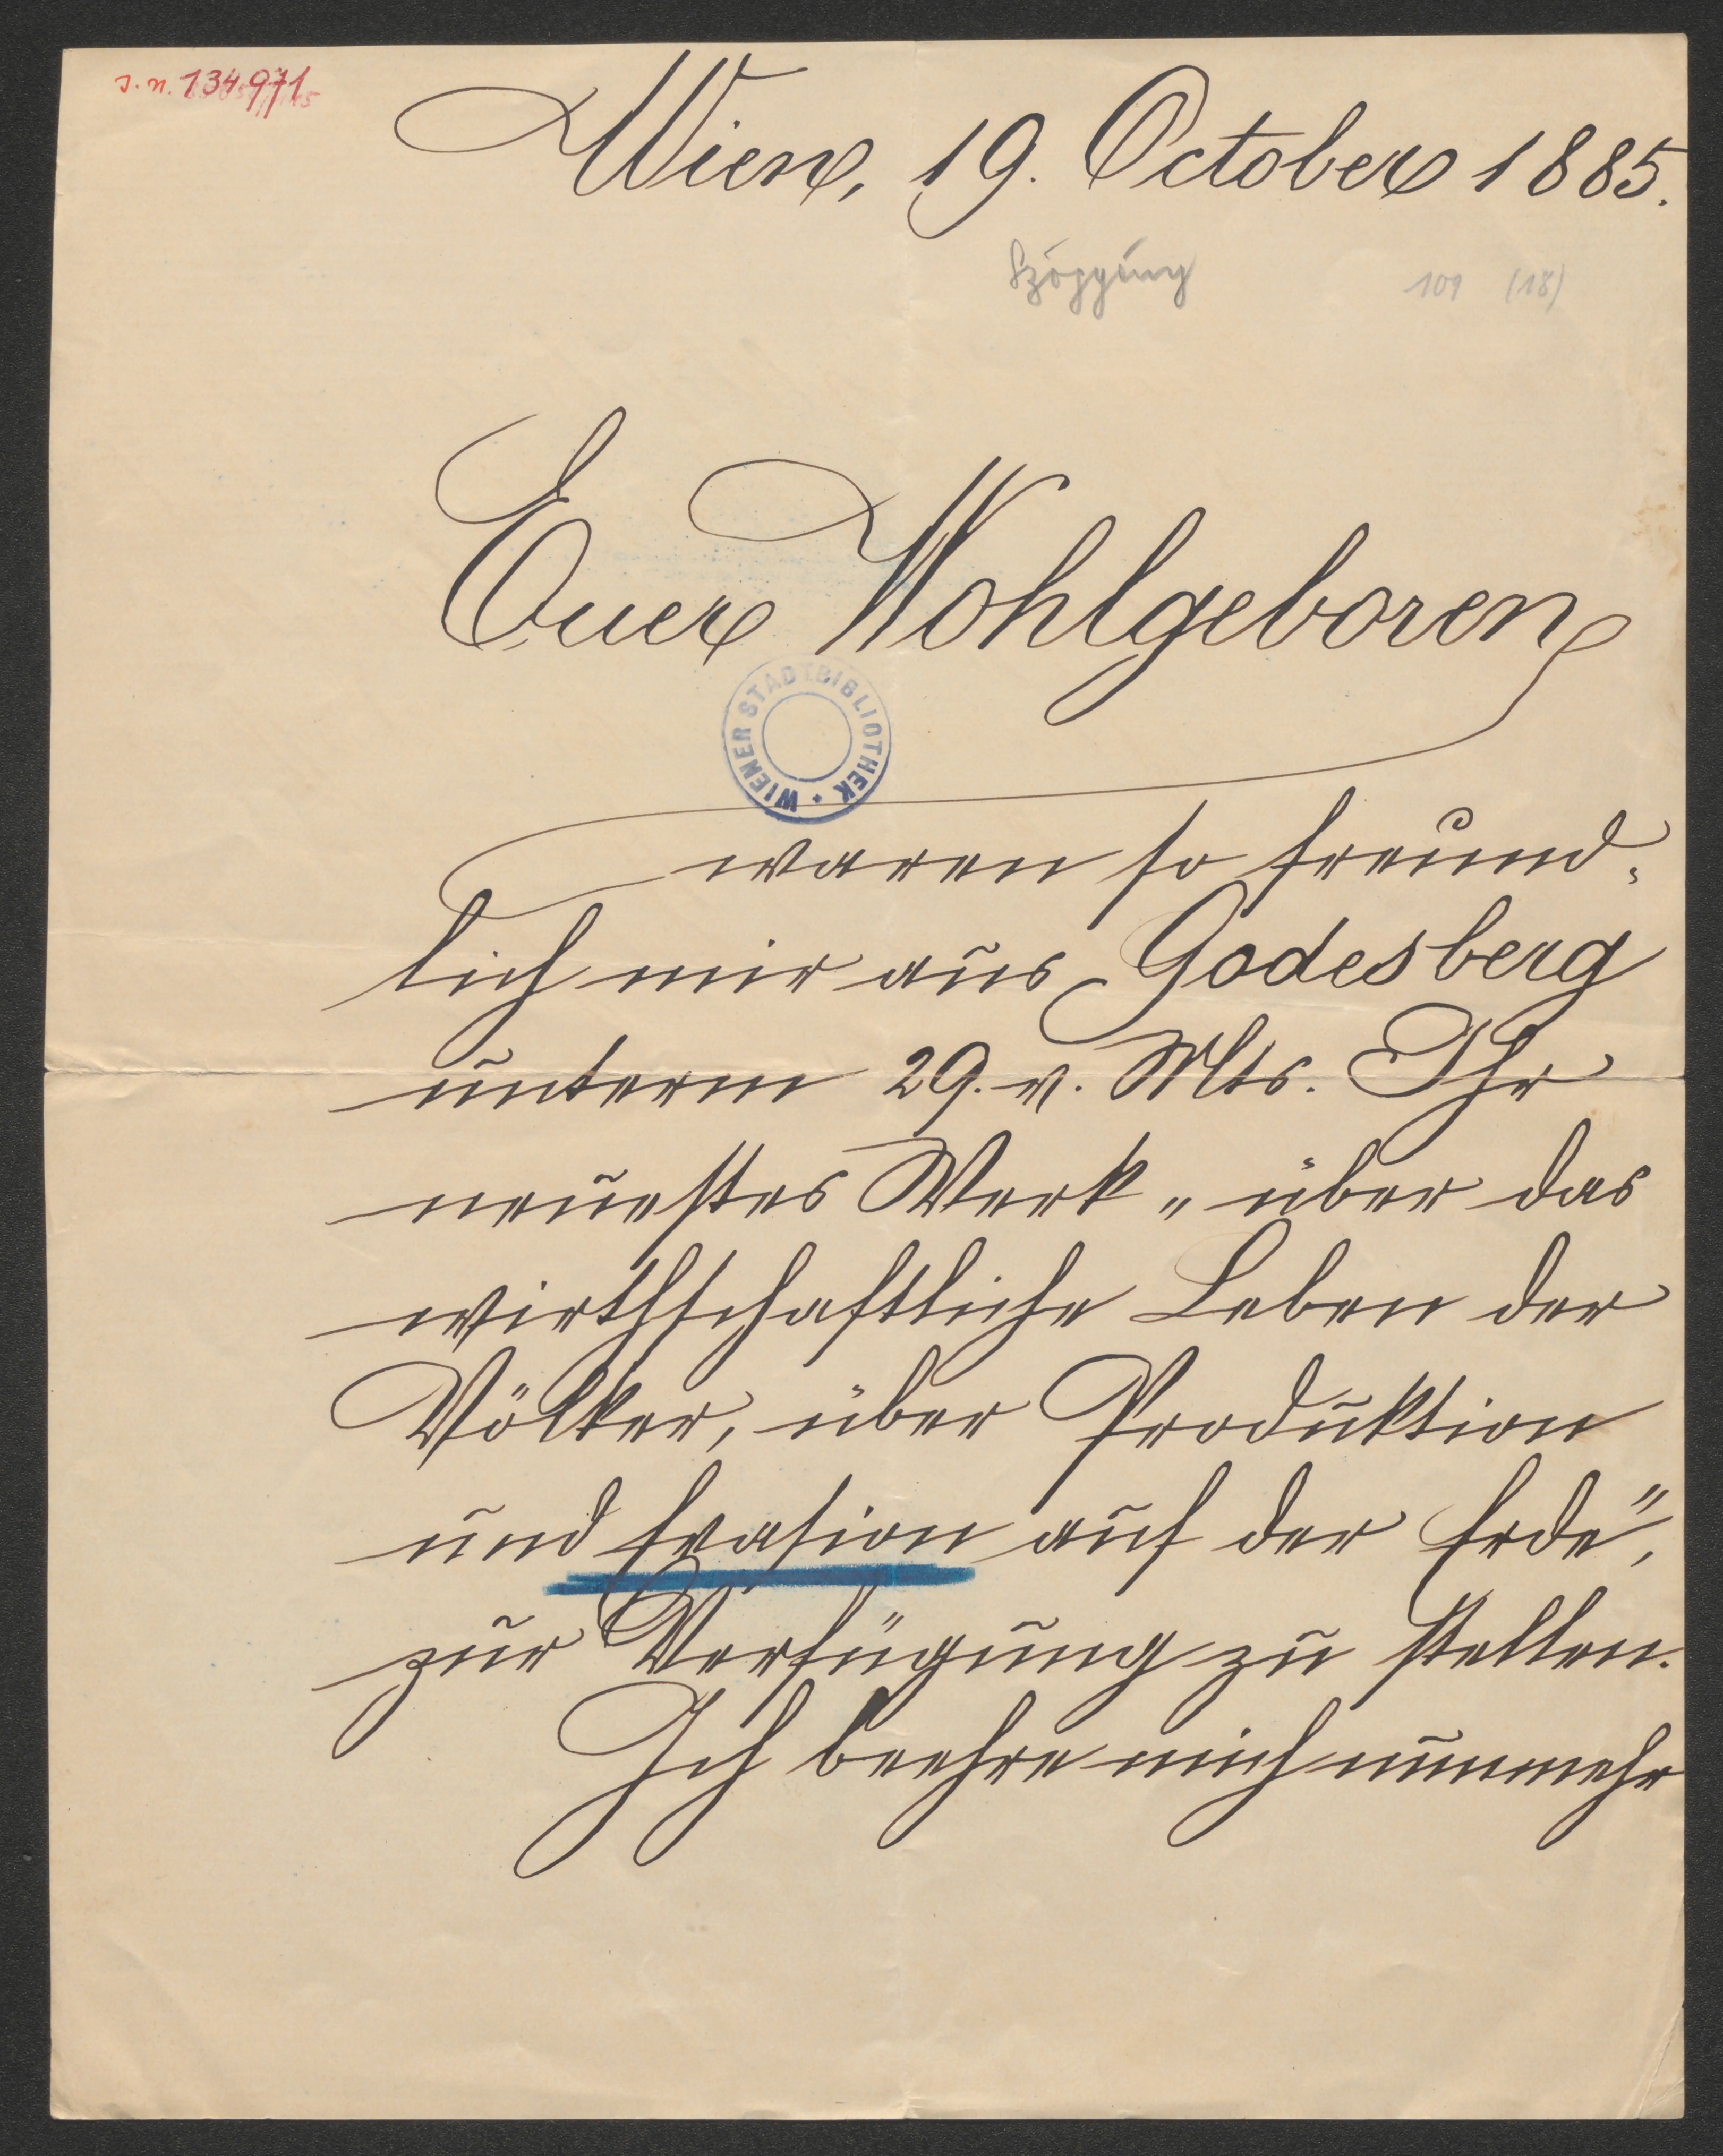 J. N. 134971
Wien, 19. October 1885.
Szögyény 109 (18)
Euer Wohlgeboren
WIENER STADTBIBLIOTHEK
waren so freund-
lich mir aus Godesberg
unterm 29. v. Mts. Ihr
neuestes Werk „über das
wirthschaftliche Leben der
Völker, über Produktion
und Evasion auf der Erde",
zur Verfügung zu stellen.
Ich beehre mich nunmehr